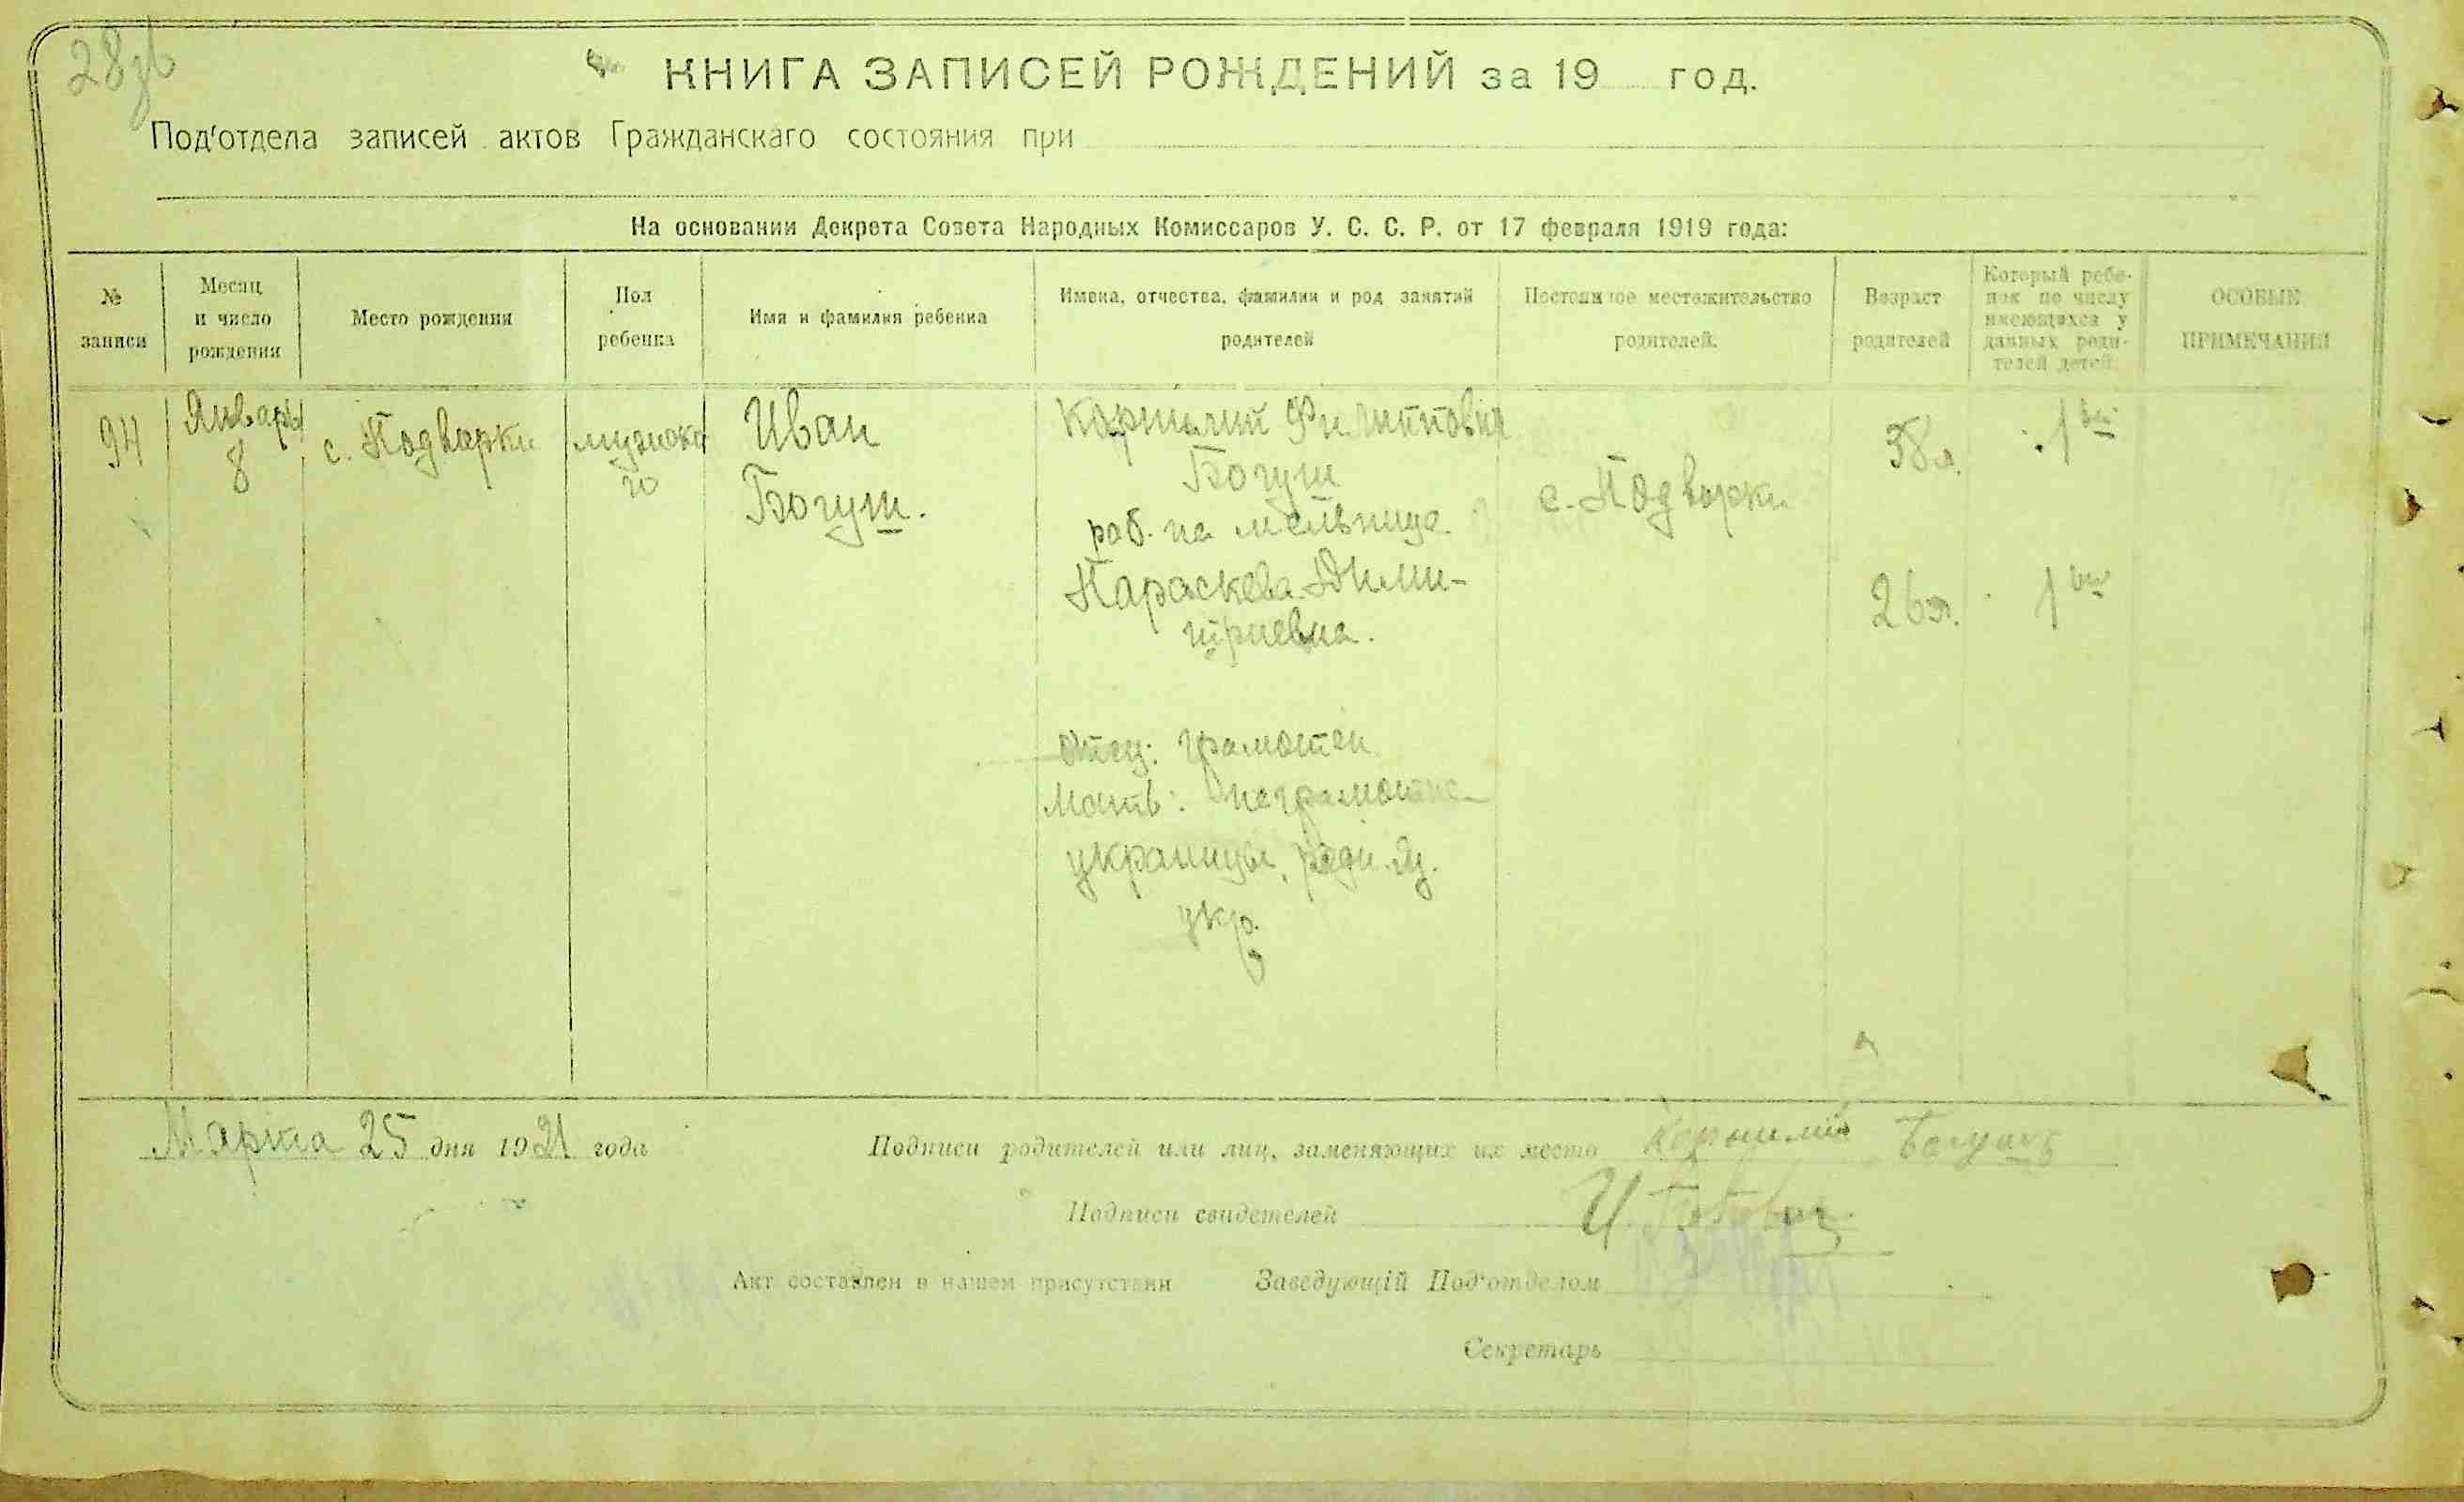 28зв
КНИГА ЗАПИСЕЙ РОЖДЕНИЙ за 19 год.
Под'отдела записей актов Гражданскаго состояния при
На основании Декрета Совета Народных Комиссаров У. С. С. Р. от 17 февраля 1919 года:
№ записи
Месяц и число рождения
Место рождения
Пол ребенка
Имя и фамилия ребенка
Имена, отчества, фамилии и род занятий родителей
Постоянное местожительство родителей.
Возраст родителей
Который ребенок по числу имеющихся у данных родителей детей.
ОСОБЫЕ ПРИМЕЧАНИЯ
94
Январь
8
с. Подворки
мужско
го
Иван
Богуш.
Корнилий Филиппович
Богуш
раб. на мельнице
Параскева Дими-
триевна.
Отец: грамотен
Мать: неграмотна
украинцы, родн. яз.
укр.
с. Подворки
38 л.
26 л.
1ый
1ый
Марта 25 дня 1921 года
Подписи родителей или лиц, заменяющих их место Корнилий Богушъ
Подписи свидетелей И.
Акт составлен в нашем присутствии Заведующій Под'отделом
Секретарь